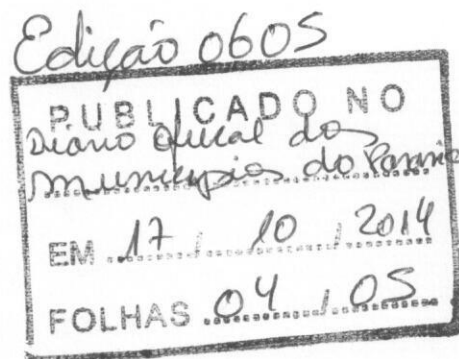 Edição 0605
PUBLICADO NO
Diário Oficial dos
Municípios do Paraná
EM 17 / 10 / 2014
FOLHAS 04 / 05